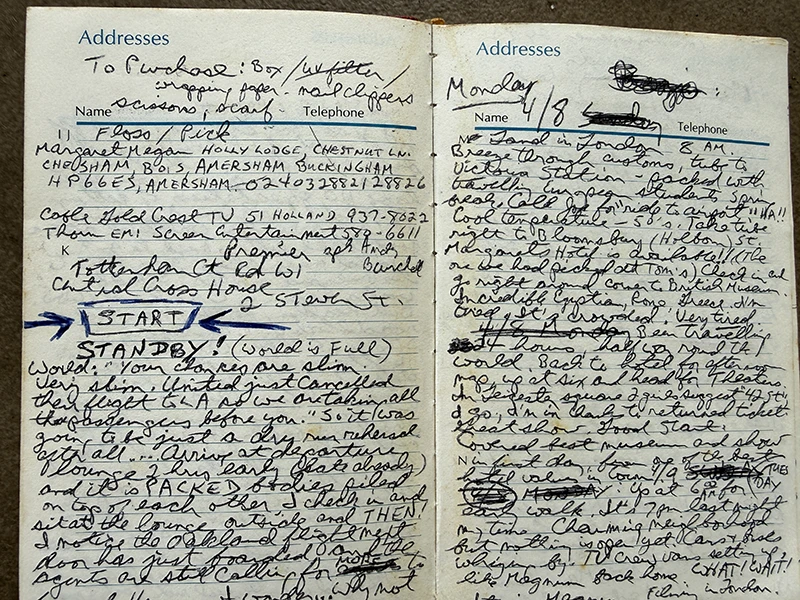 Addresses
To Purchase: Box / uv filter /
wrapping paper - nail clippers
scissors, scarf
Name Telephone
" Floss / Pick
Margaret Megan HOLLY LODGE, CHESTNUT LN.
CHESHAM, BOIS, AMERSHAM BUCKINGHAM
AMERSHAM
Cable Gold Crest TV 51 HOLLAND 937-8022
Thorn EMI Screen Entertainment 589-6611
K Premier apt Andy
Tottenham Ct Rd W1
Central Cross House
2 Stephen St.
START
STANDBY! (World is Full)
World: "Your chances are slim.
Very slim. United just cancelled
their flight to LA so we are taking all
the passengers before you." So it was
going to be just a dry run rehersal
after all... Arrive at departure
lounge 2 hrs early (hate already)
and it is PACKED bodies piled
on top of each other I check in and
sit at the lounge outside and THEN!
I notice the Oakland flight night
door has just boarded and the
agents are still calling for more to
why not
Addresses
Monday
4/8
Name Telephone
Land in London 8 AM.
Breeze through customs, tube to
Victoria Station - packed with
travelling European students Spring
break. Cold "HA!!
Cool temperature - 50's. Take tube
right to Bloomsbury (Holborn) St.
Margarets Hotel is available!! (The
one we had picked at Tom's) Check in and
go right around corner to British Museum.
Incredible Egyptian, Rome, Greece. I'm
tired & it's crowded. Very tired
4/8 Monday Been travelling
24 hours - half way round the
world. Back to hotel for afternoon
nap, up at six and head for Theater.
In Leicester square 2 guys suggest "42 St",
I go, I'm in clark to returned ticket.
Great show. Good start.
Covered best museum and show
in first day, from one of the best
hotel values in town. 4/9 TUES
DAY
MONDAY. Up at 6 AM for
early walk. It's 7 pm last night
my time. Charming neighborhood
but nothing is open yet. Cars & buses
whizing by. TV Crew vans setting up,
like Magnum back home. WHAT! WAIT!
Magnum Filming in London.